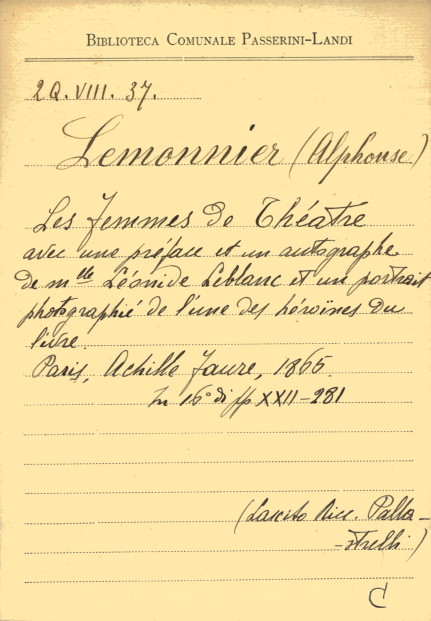 BIBLIOTECA COMUNALE PASSERINI-LANDI
2Q.VIII.37.
Lemonnier (Alphonse)
Les femmes de Théatre
avec une préface et un autographe
de mlle Léonide Leblanc et un portrait
photographié de l'une des héroïnes du
livre.
Paris, Achille Faure, 1865.
In 16° di pp XXII-281
(Lascito Ricc. Palla-
-strelli)
C